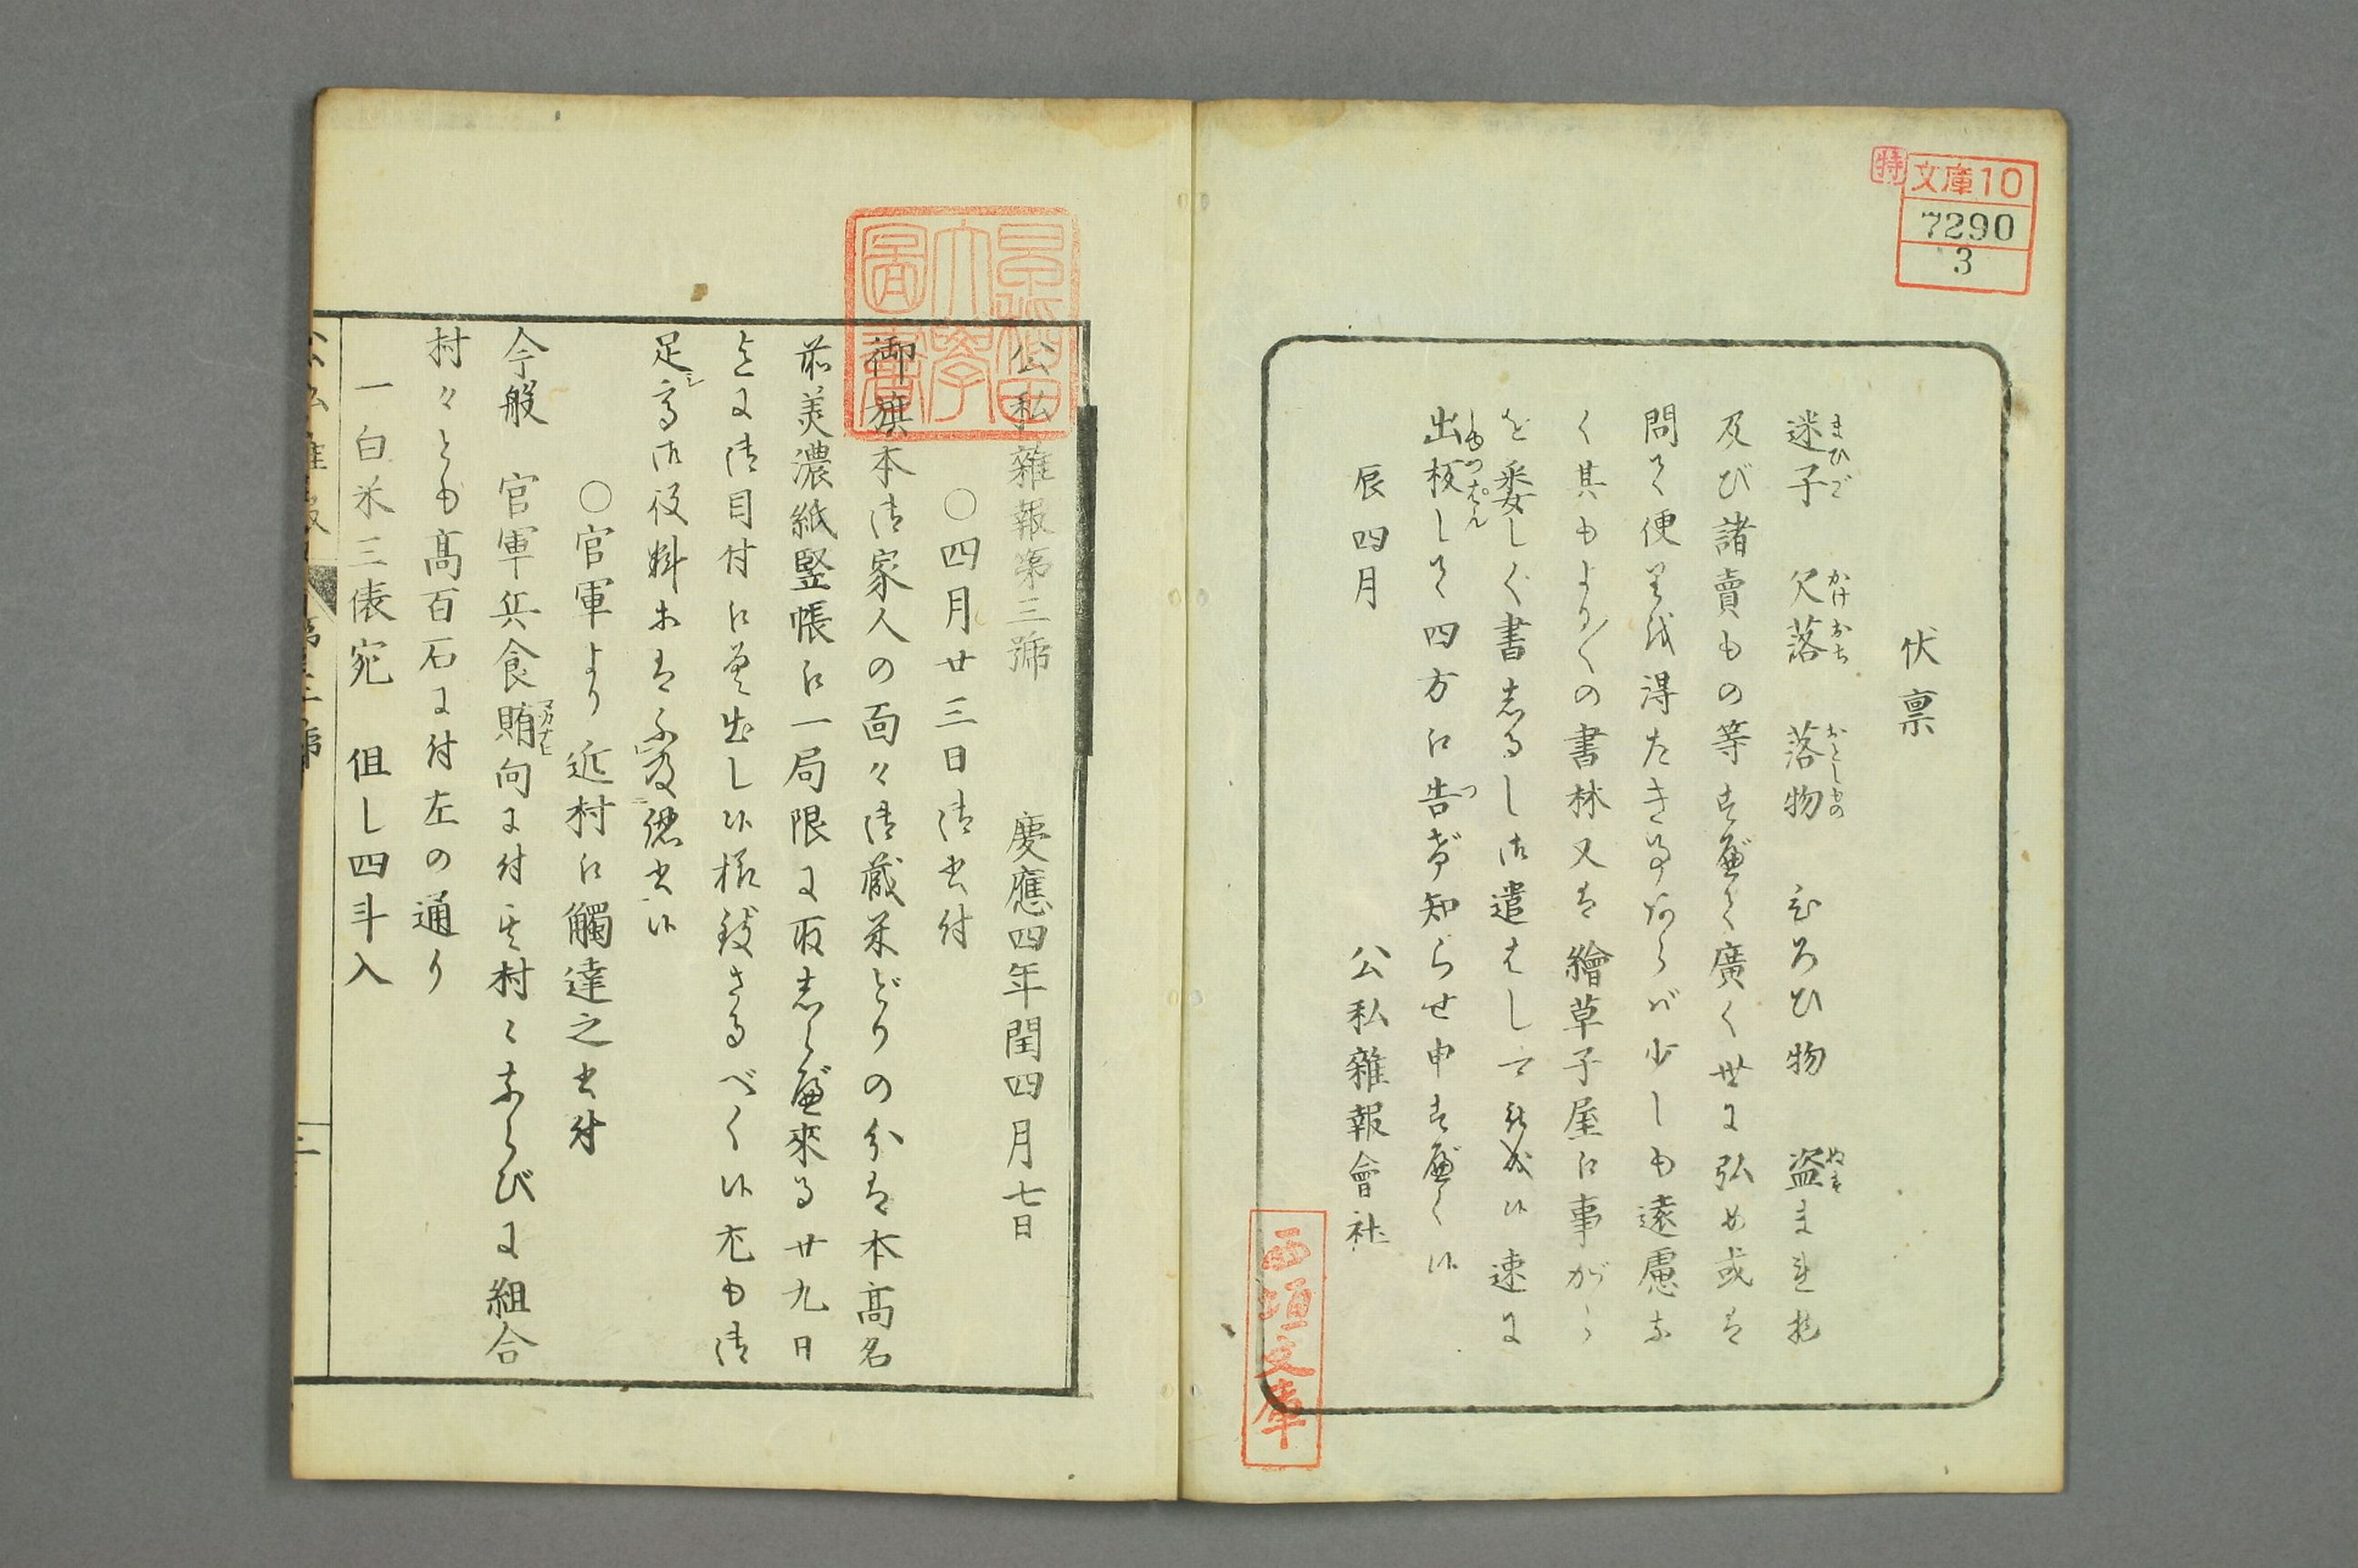 特
文庫10
7290
3
伏稟
迷子 欠落 落物 ひろひ物 盗まれ物
及び諸賣もの等すべて廣く世に弘め或は
問て便りを得たき事あらば少しも遠慮な
く其もより〱の書林又は繪草子屋江事がら
を委しく書しるし御遣はし可被成候速に
出板して四方江告げ知らせ申すべく候
辰四月
公私雜報會社
西垣文庫
公私雜報第三號 慶應四年閏四月七日
○四月廿三日御書付
御旗本御家人の面々御藏米どりの分は本高名
前美濃紙竪帳江一局限に取しらべ來る廿九日
迄に御目付江差出し候樣致さるべく候尤も御
足高御役料等は
○官軍より近村江觸達之書付
今般 官軍兵食賄向に付其村々ならびに組合
村々とも高百石に付左の通り
一白米三俵宛 但し四斗入